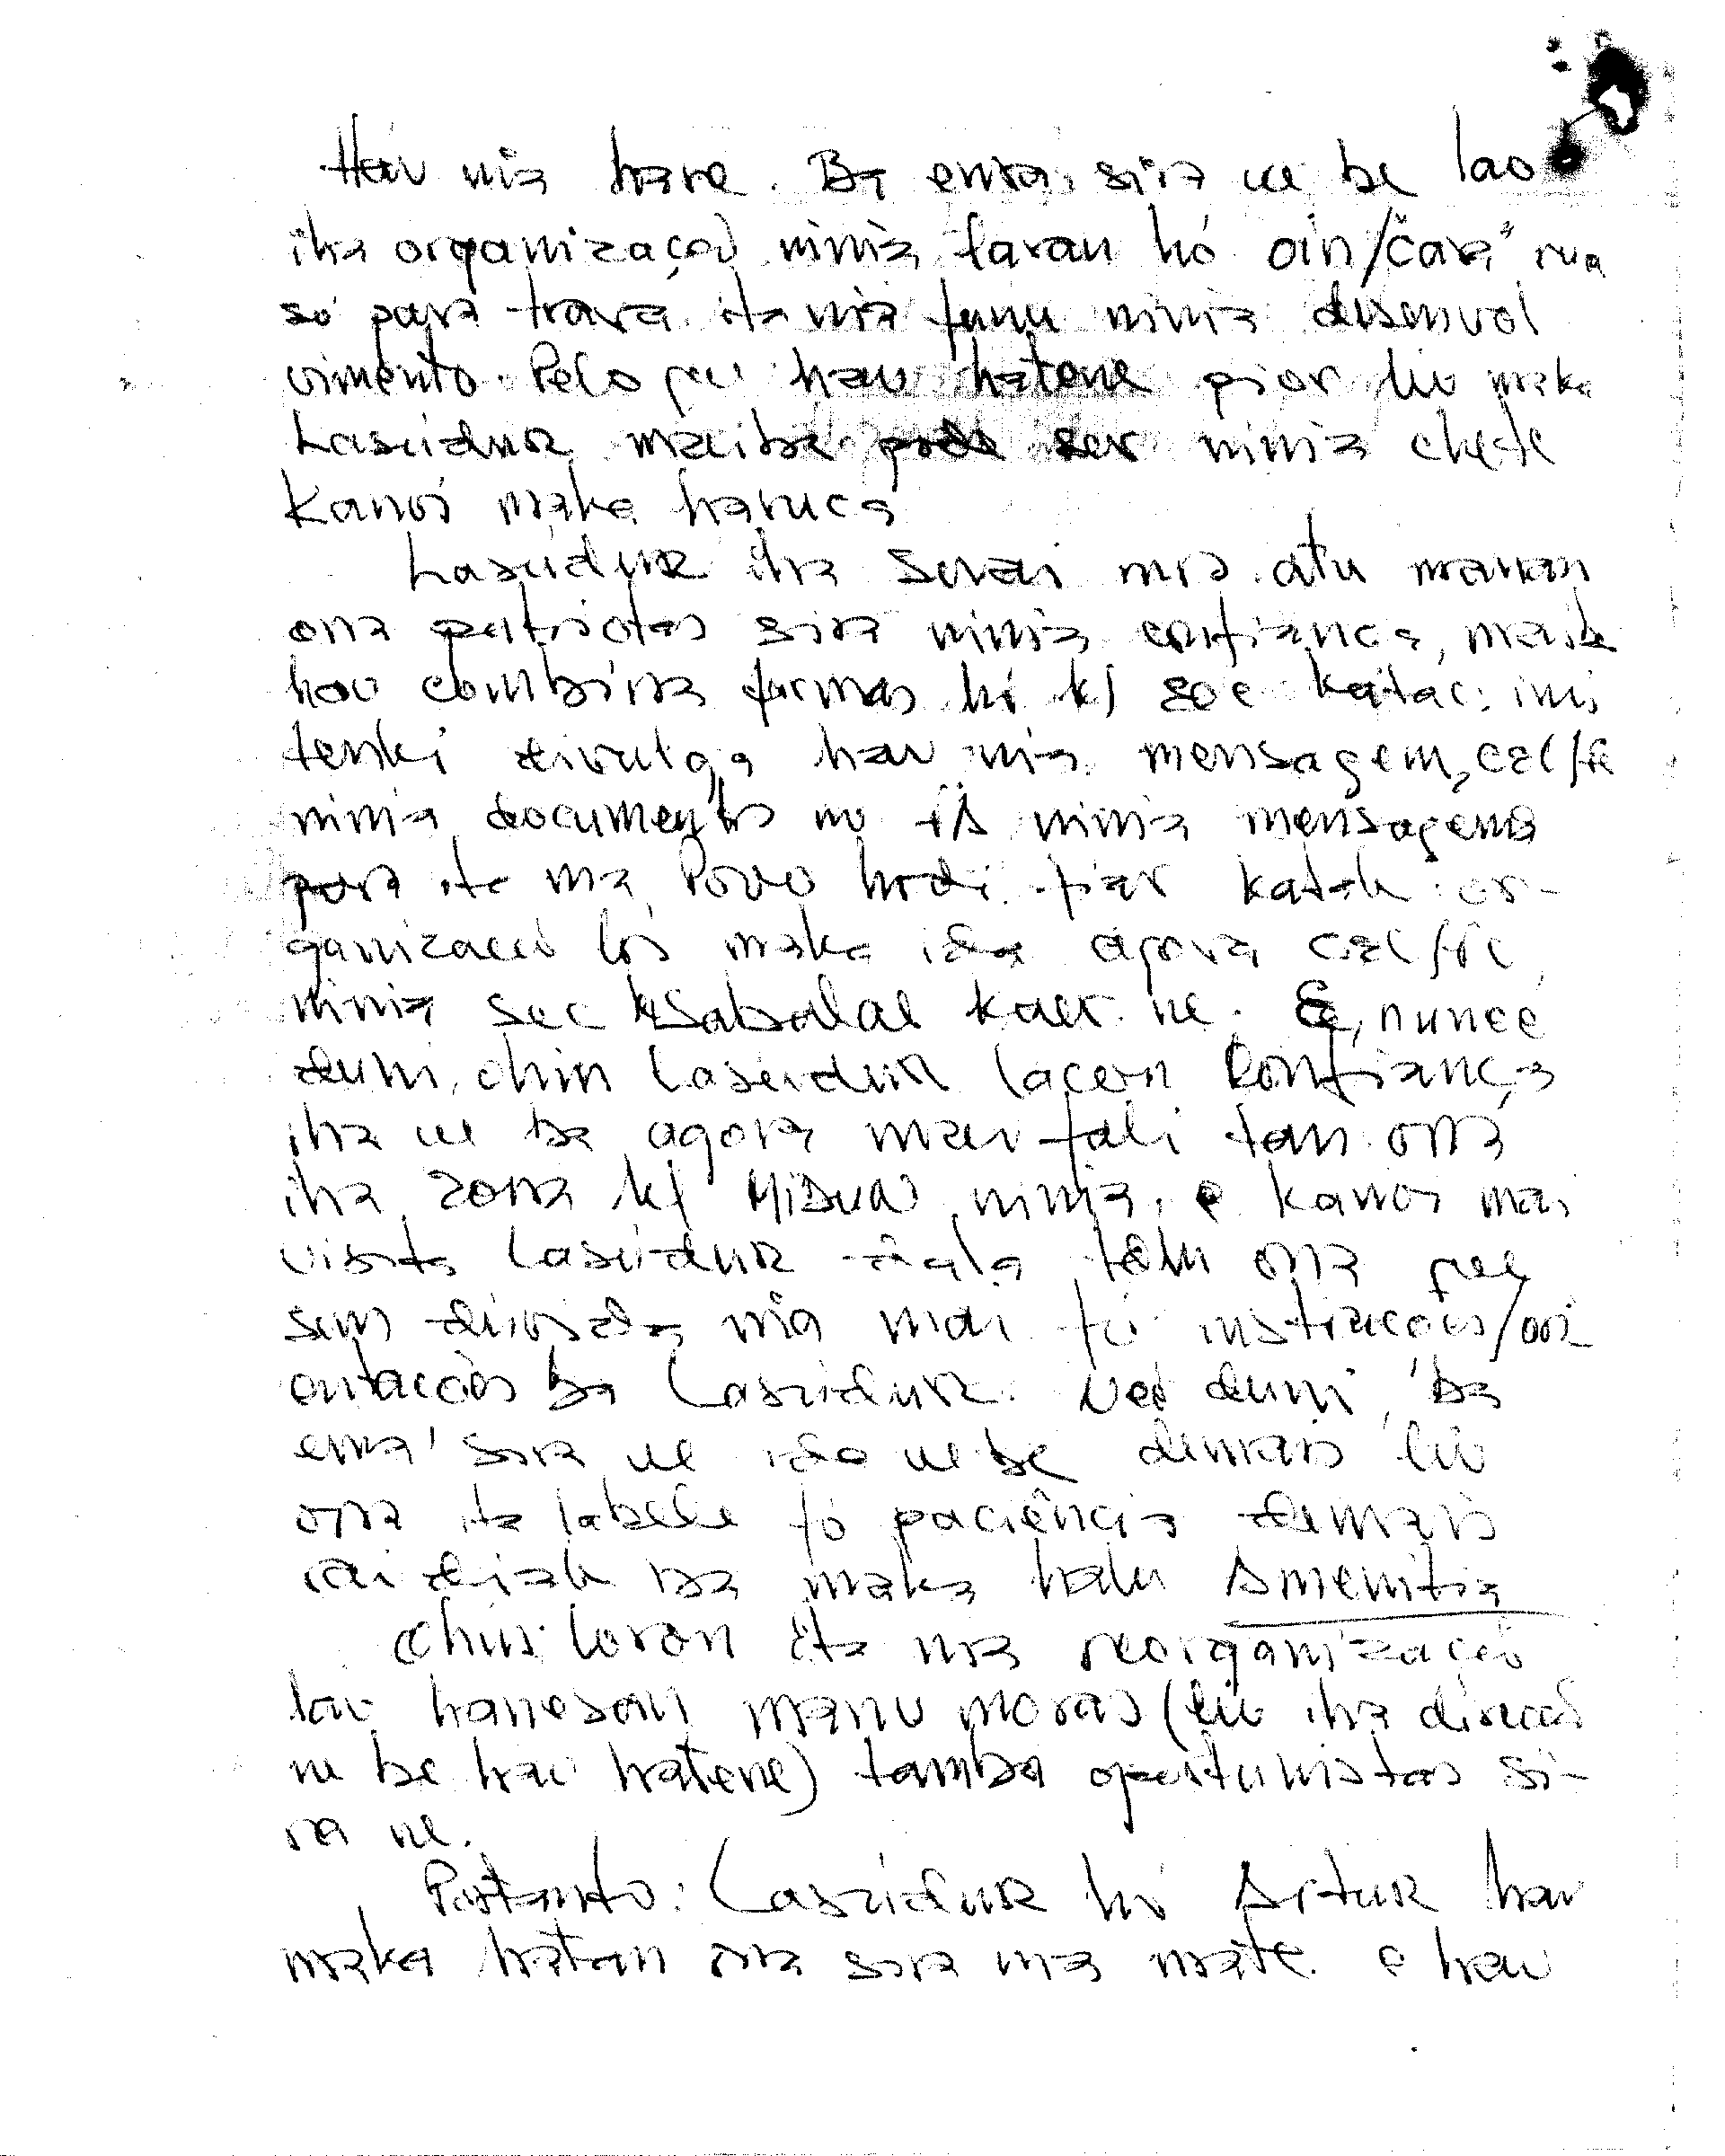 Hau nia hare. Ba ema sira ne be lao
iha organizaçaõ ninia laran hó oin/"cara" rua
só para trava ita nia funu ninia desenvol
vimento. Pelo que hau hatene pior liu maka
Lasudur maibe pode ser ninia chefe
Kanoi maka haruca
Lasudur iha serai nia atu manan
ona patriotas sira ninia confiança, maibe
hau combina formas hó kj soe katac: imi
tenki divulga hau nia mensagem, cel/fc
ninia documentos no ninia mensagens
para ita nia Povo hodi fiar katak or-
ganizacaõ los maka ida agora cel/fc
ninia sec Ksabalae kaer ne. E, nunee
duni, ohin Lasudur lacon Confiança
iha ne be agora mai fali tan ona
iha zona kj ninia. e kanoi mai
visita Lasudur dala tolu ona que
sem duvida nia mai fó instrucoes/ori
entaccões ba Lasudur. Neé duni, ba
ema sira ne ida ne be demais liu
ona ita labele fó paciência demais
rai diak ba maka halu Amenitia
Ohin loron ita nia reorganizaçaõ
lao hanesan manu moras (liu iha direcaõ
ne be hau hatene) tamba oportunistas si-
ra ne.
Portanto: Lasudur hó Artur hau
maka hatan ona sira nia mate. e hau